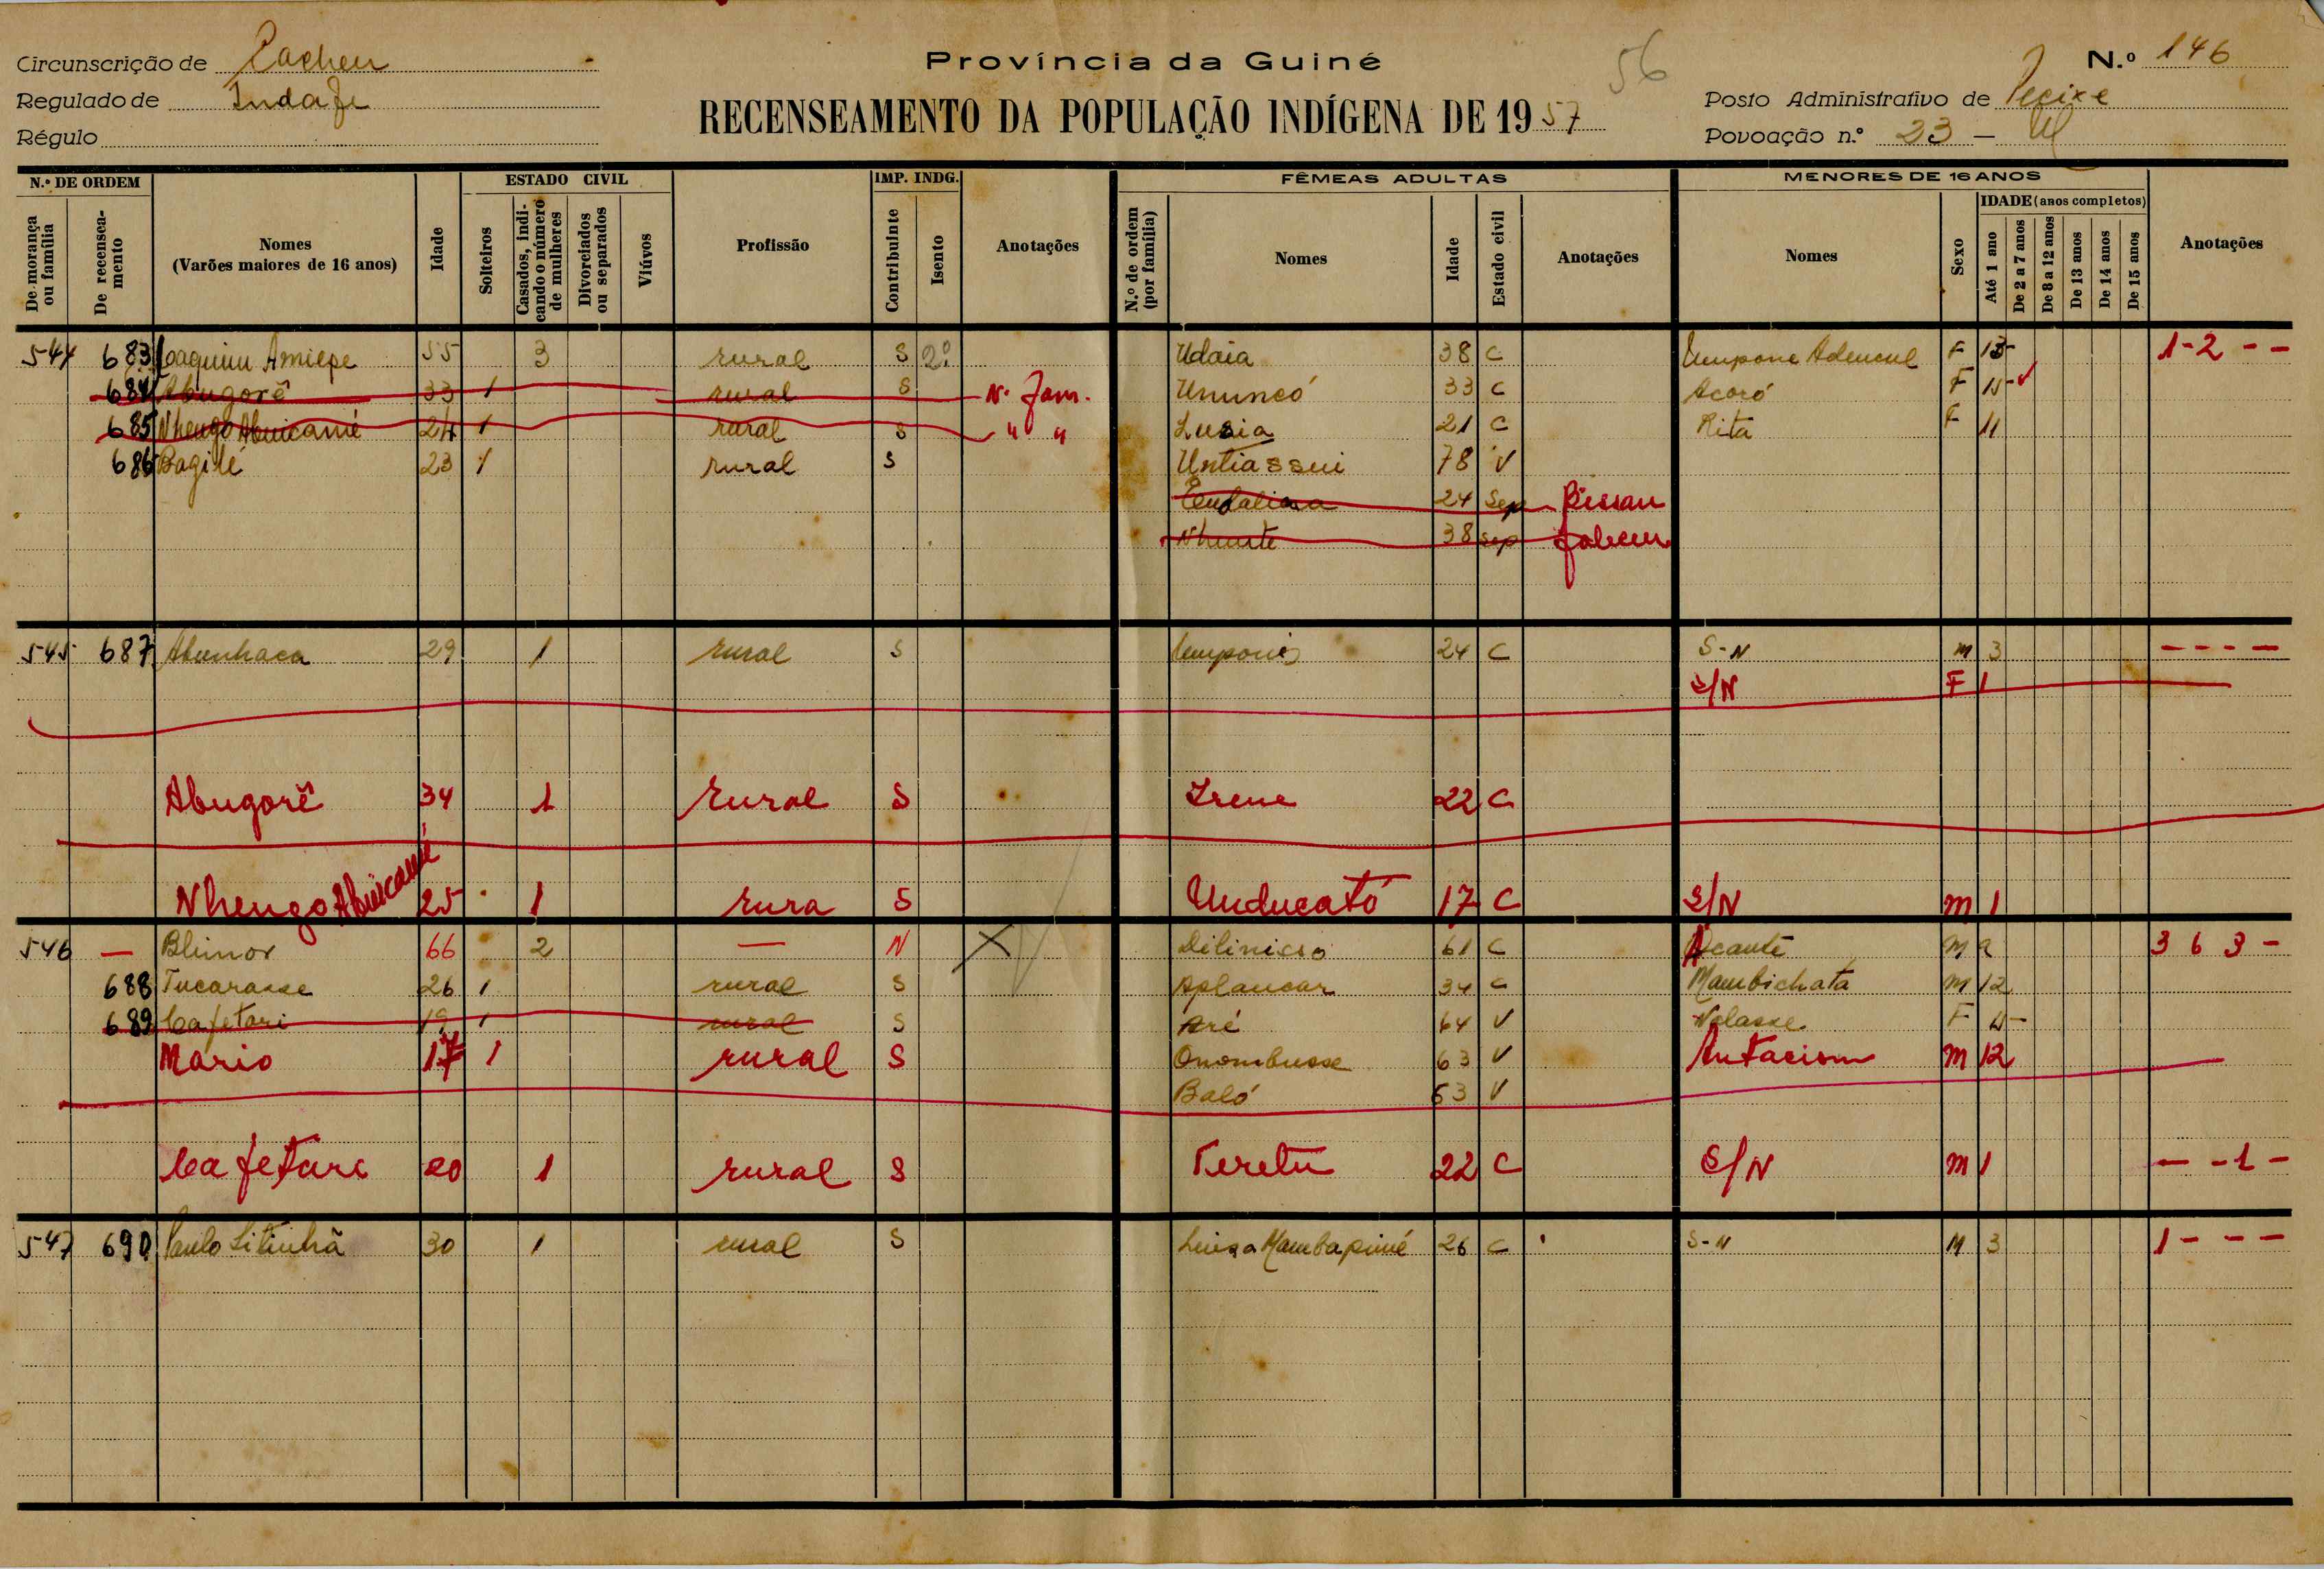 Circunscrição de Cacheu
Província da Guiné
56
N.º 146
Regulado de Indafe
RECENSEAMENTO DA POPULAÇÃO INDÍGENA DE 1957
Posto Administrativo de Pecixe
Régulo
Povoação n.º 23 -
N.º DE ORDEM
ESTADO CIVIL
IMP. INDG.
FÊMEAS ADULTAS
MENORES DE 16 ANOS
De morança ou família
De recenseamento
Nomes (Varões maiores de 16 anos)
Idade
Solteiros
Casados, indicando o número de mulheres
Divorciados ou separados
Viúvos
Profissão
Contribuinte
Isento
Anotações
N.º de ordem (por família)
Nomes
Idade
Estado civil
Anotações
Nomes
Sexo
IDADE (anos completos)
Até 1 ano
De 2 a 7 anos
De 8 a 12 anos
De 13 anos
De 14 anos
De 15 anos
Anotações
544 683 Joaquim Amiepe 55 3 rural S 2º Udaia 38 C Umpone F 13 - 1 - 2 - -
684 Abugorê 33 1 rural S N. Fam. Ununcó 33 C Acoró F 11 -
685 Nhengo Abuicamé 24 1 rural S " " Lusia 21 C Rita F 11
686 Bagilé 23 1 rural S Untiassui 78 V
24 Sep Bissau
Nhunte 38 Sep
545 687 Abunhaca 29 1 rural S Umponis 24 C S-N M 3 - - - -
S/N F 1
Abugorê 34 1 rural S Irene 22 C
Nhengo Abuicamé 25 1 rura S Unducató 17 C S/N M 1
546 — Blimor 66 2 — N X Dilinicso 61 C Acante M 2 3 6 3 -
688 Tucarasse 26 1 rural S Aplancar 34 C Mambichata M 12
689 Cafetari 19 1 rural S Aré 64 V Nolasse F 11 -
Mario 17 1 rural S Onombusse 63 V Antacism M 12
Baló 63 V
Cafetari 20 1 rural S Teretu 22 C S/N M 1 - - 1 -
547 690 Paulo Litinhã 30 1 rural S Luiza Mambapimé 26 C S-N M 3 1 - - -